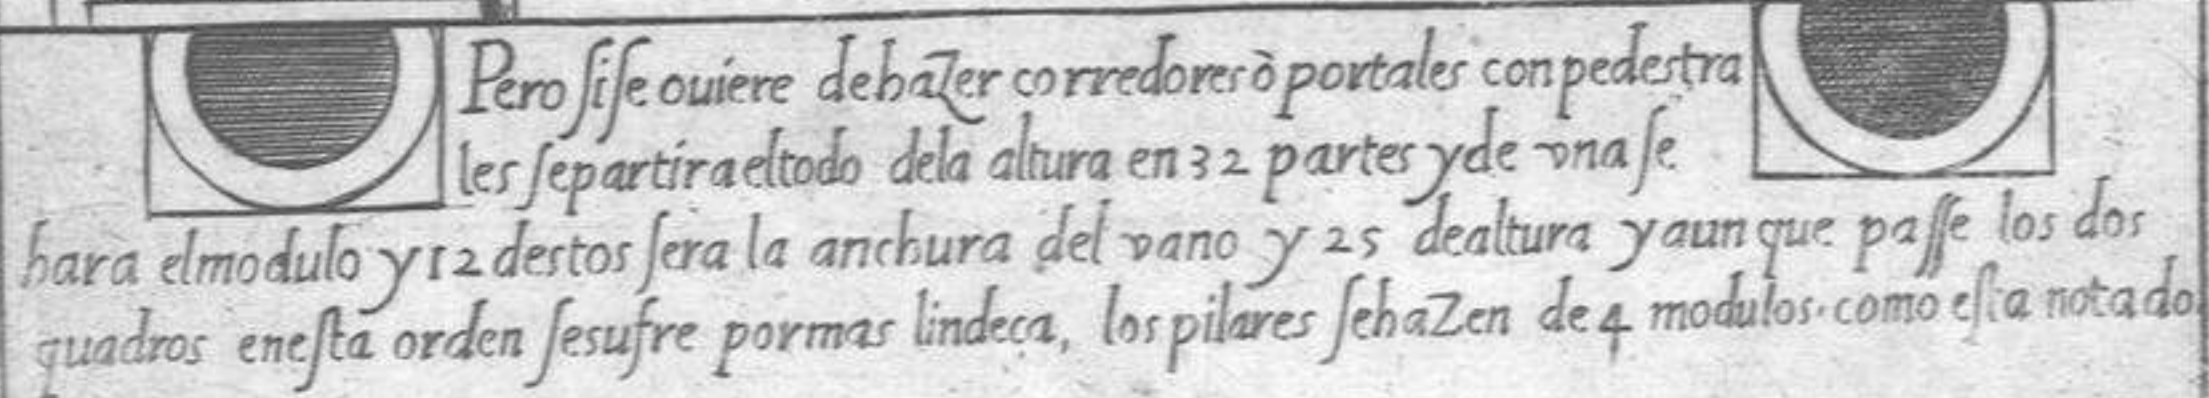 Pero ſi ſe ouiere de hazer corredores ò portales con pedestra
les ſe partira el todo dela altura en 32 partes y de vna ſe
hara el modulo y 12 destos ſera la anchura del vano y 25 de altura y aun que paſſe los dos
quadros en eſta orden ſe sufre por mas lindeça, los pilares ſe hazen de 4 modulos. como eſta notado